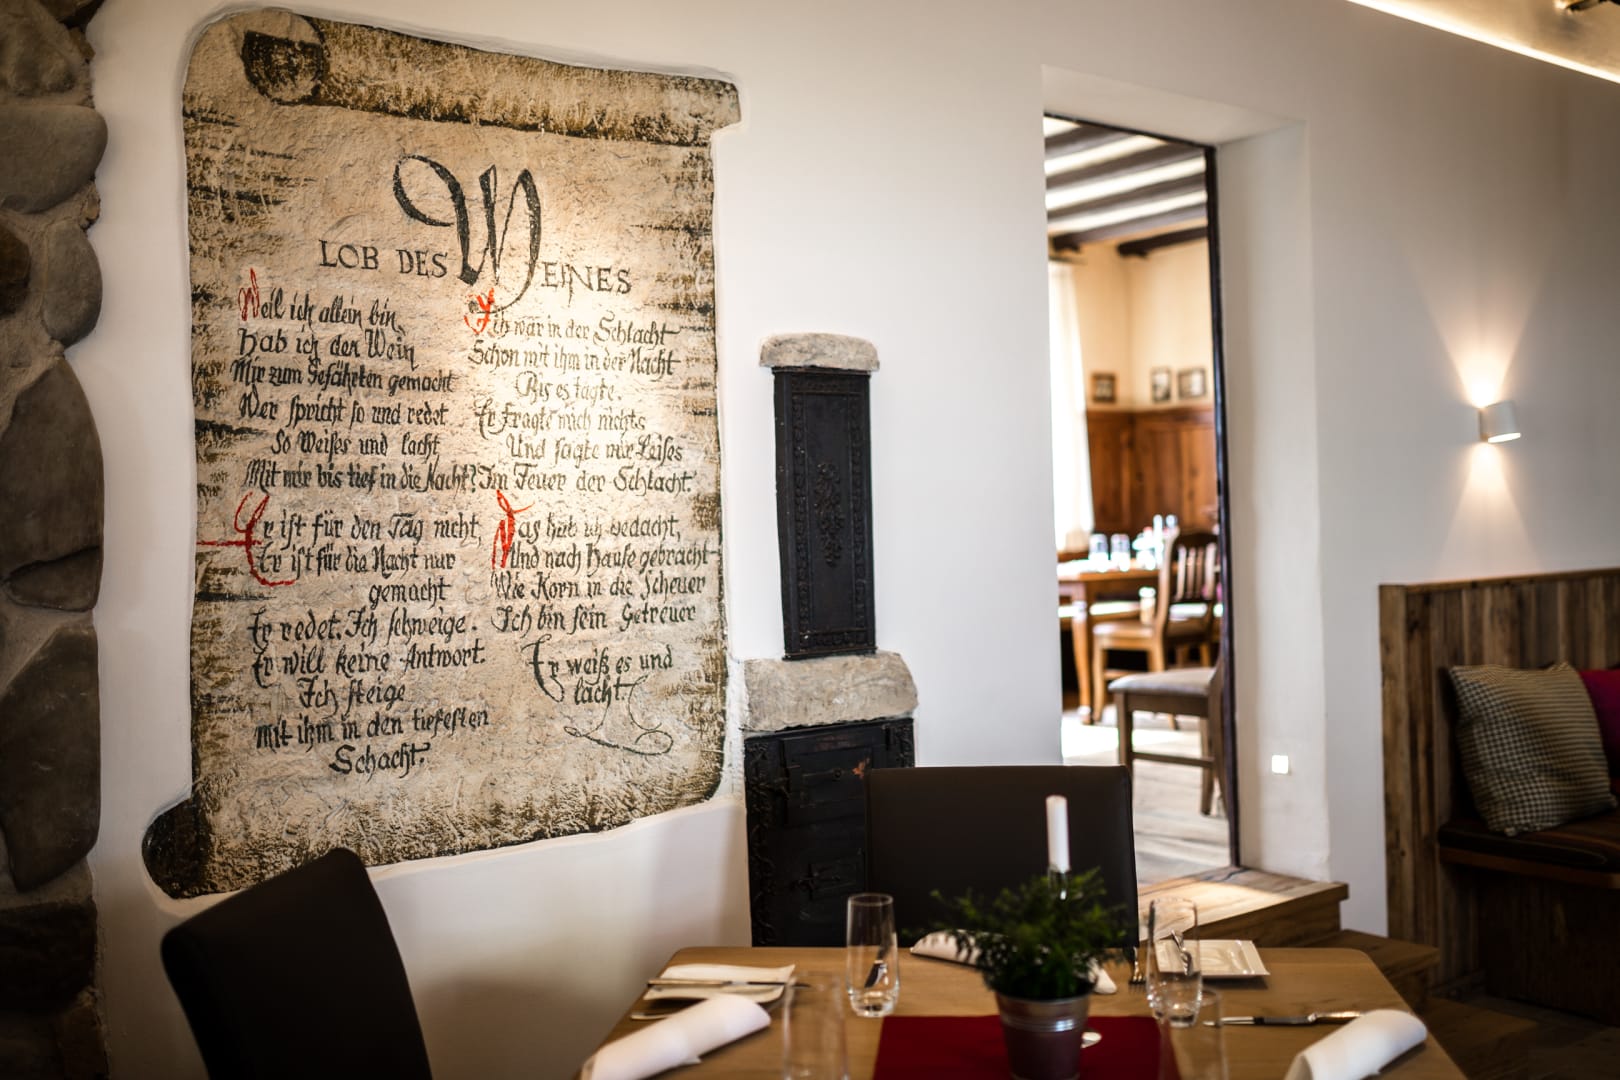 LOB DES WEINES
Weil ich allein bin,
Hab ich den Wein
Mir zum Gefährten gemacht
Wer spricht so und redet
So Weises und lacht
Mit mir bis tief in die Nacht?
Er ist für den Tag nicht,
Er ist für die Nacht nur
gemacht
Er redet. Ich schweige.
Er will keine Antwort.
Ich steige
mit ihm in den tiefesten
Schacht.
Ich war in der Schlacht
Schon mit ihm in der Nacht
Bis es tagte.
Er fragte mich nichts
Und sagte mir Leises
Im Feuer der Schlacht.
Das hab ich bedacht,
Und nach Hause gebracht
Wie Korn in die Scheuer
Ich bin sein Getreuer
Er weiß es und
lacht.